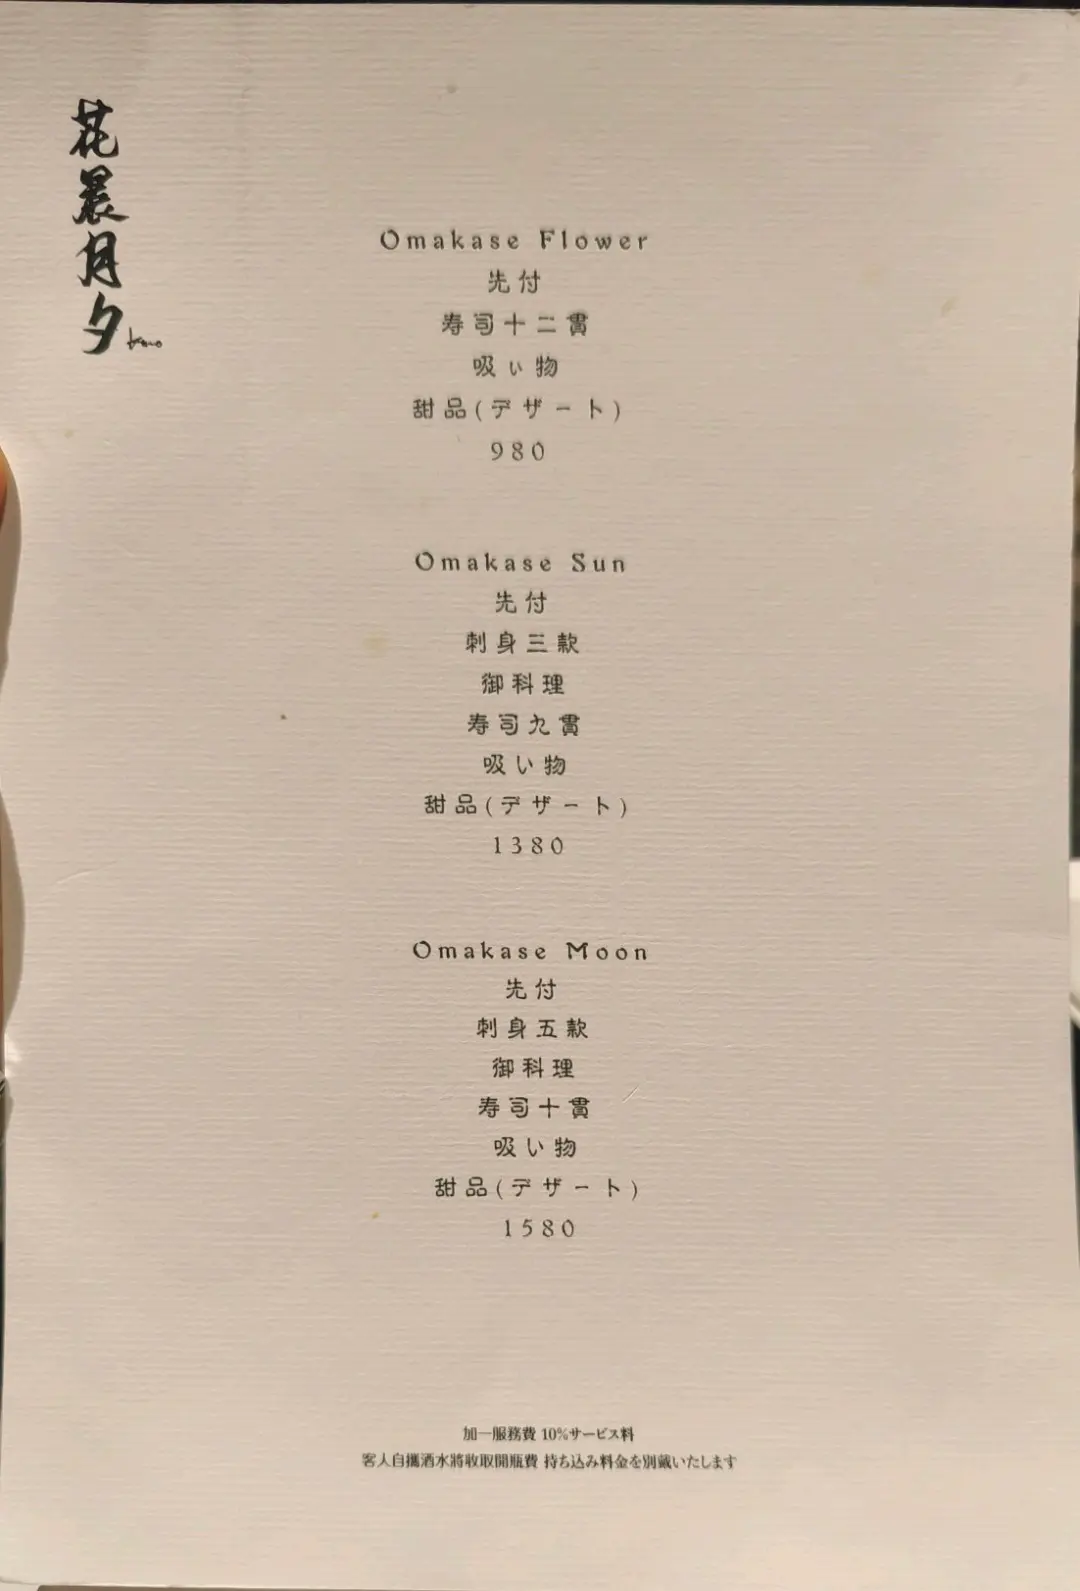 花晨月夕
Omakase Flower
先付
寿司十二貫
吸い物
甜品(デザート)
980
Omakase Sun
先付
刺身三款
御料理
寿司九貫
吸い物
甜品(デザート)
1380
Omakase Moon
先付
刺身五款
御料理
寿司十貫
吸い物
甜品(デザート)
1580
加一服務費 10%サービス料
客人自攜酒水將收取開瓶費 持ち込み料金を別戴いたします